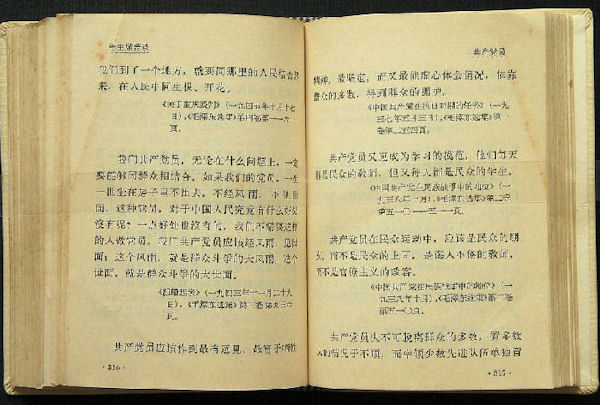 毛主席语录
我们到了一个地方，就要同那里的人民结合起
来，在人民中间生根、开花。
《关于重庆谈判》（一九四五年十月十七
日），《毛泽东选集》第四卷第一一六
页。
我们共产党员，无论在什么问题上，一定
要能够同群众相结合。如果我们的党员，一生
一世坐在房子里不出去，不经风雨，不见世
面，这种党员，对于中国人民究竟有什么好处
没有呢？一点好处也没有的，我们不需要这样
的人做党员。我们共产党员应该经风雨，见世
面；这个风雨，就是群众斗争的大风雨，这个
世面，就是群众斗争的大世面。
《组织起来》（一九四三年十一月二十九
日），《毛泽东选集》第三卷第九三六
页。
共产党员应该作到最有远见，最富于牺牲
·316·
共产党员
精神，最坚定，而又最能虚心体会情况，依靠
群众的多数，得到群众的拥护。
《中国共产党在抗日时期的任务》（一九
三七年五月三日），《毛泽东选集》第一
卷第二五四页。
共产党员又应成为学习的模范，他们每天
都是民众的教师，但又每天都是民众的学生。
《中国共产党在民族战争中的地位》（一
九三八年十月），《毛泽东选集》第二卷
第五一〇——五一一页。
共产党员在民众运动中，应该是民众的朋
友，而不是民众的上司，是诲人不倦的教师，
而不是官僚主义的政客。
《中国共产党在民族战争中的地位》（一
九三八年十月），《毛泽东选集》第二卷
第五一〇页。
共产党员决不可脱离群众的多数，置多数
人的情况于不顾，而率领少数先进队伍单独冒
·317·